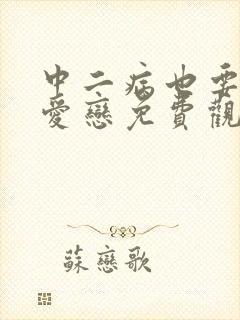 中二病也要
愛戀免費觀
蘇戀歌